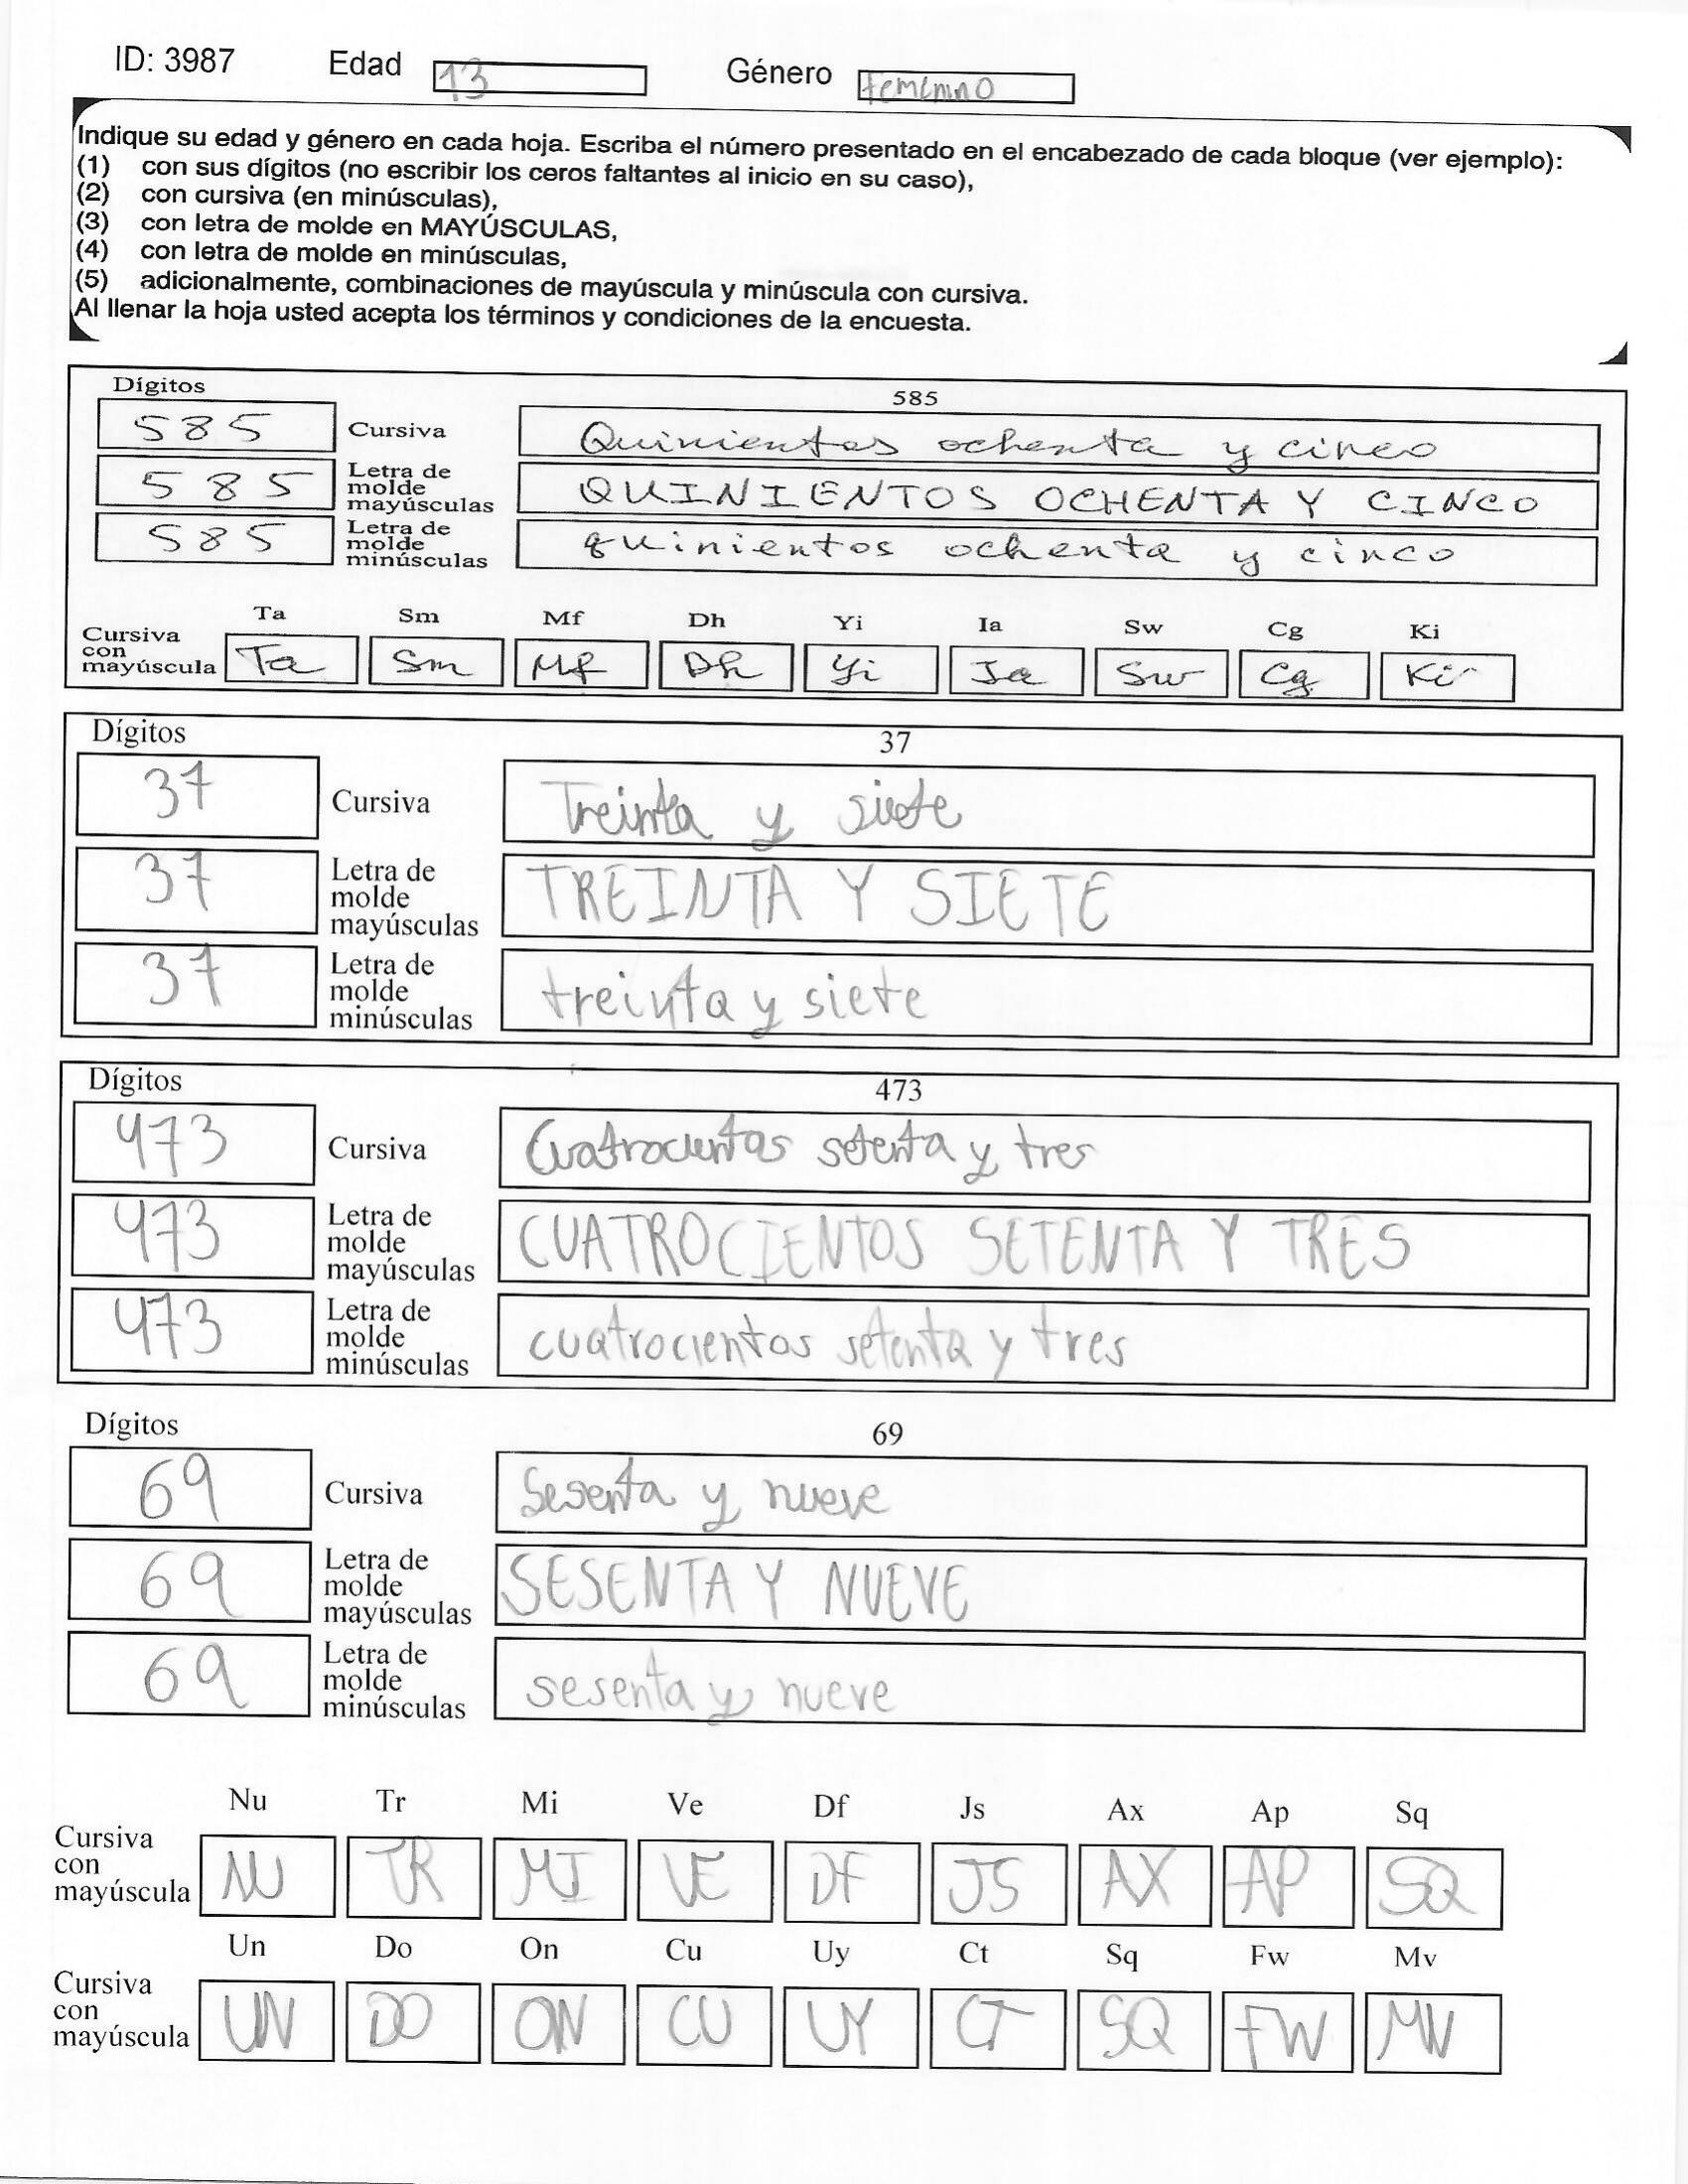 ID: 3987 Edad 13 Género femenino
Indique su edad y género en cada hoja. Escriba el número presentado en el encabezado de cada bloque (ver ejemplo):
(1) con sus dígitos (no escribir los ceros faltantes al inicio en su caso),
(2) con cursiva (en minúsculas),
(3) con letra de molde en MAYÚSCULAS,
(4) con letra de molde en minúsculas,
(5) adicionalmente, combinaciones de mayúscula y minúscula con cursiva.
Al llenar la hoja usted acepta los términos y condiciones de la encuesta.
Dígitos 585
585 Cursiva Quinientos ochenta y cinco
585 Letra de molde mayúsculas QUINIENTOS OCHENTA Y CINCO
585 Letra de molde minúsculas quinientos ochenta y cinco
Ta Sm Mf Dh Yi Ia Sw Cg Ki
Cursiva con mayúscula Ta Sm Mf Dh Yi Ia Sw Cg Ki
Dígitos 37
37 Cursiva Treinta y siete
37 Letra de molde mayúsculas TREINTA Y SIETE
37 Letra de molde minúsculas treinta y siete
Dígitos 473
473 Cursiva Cuatrocientos setenta y tres
473 Letra de molde mayúsculas CUATROCIENTOS SETENTA Y TRES
473 Letra de molde minúsculas cuatrocientos setenta y tres
Dígitos 69
69 Cursiva Sesenta y nueve
69 Letra de molde mayúsculas SESENTA Y NUEVE
69 Letra de molde minúsculas sesenta y nueve
Nu Tr Mi Ve Df Js Ax Ap Sq
Cursiva con mayúscula NU TR MI VE DF JS AX AP SQ
Un Do On Cu Uy Ct Sq Fw Mv
Cursiva con mayúscula UN DO ON CU UY CT SQ FW MV